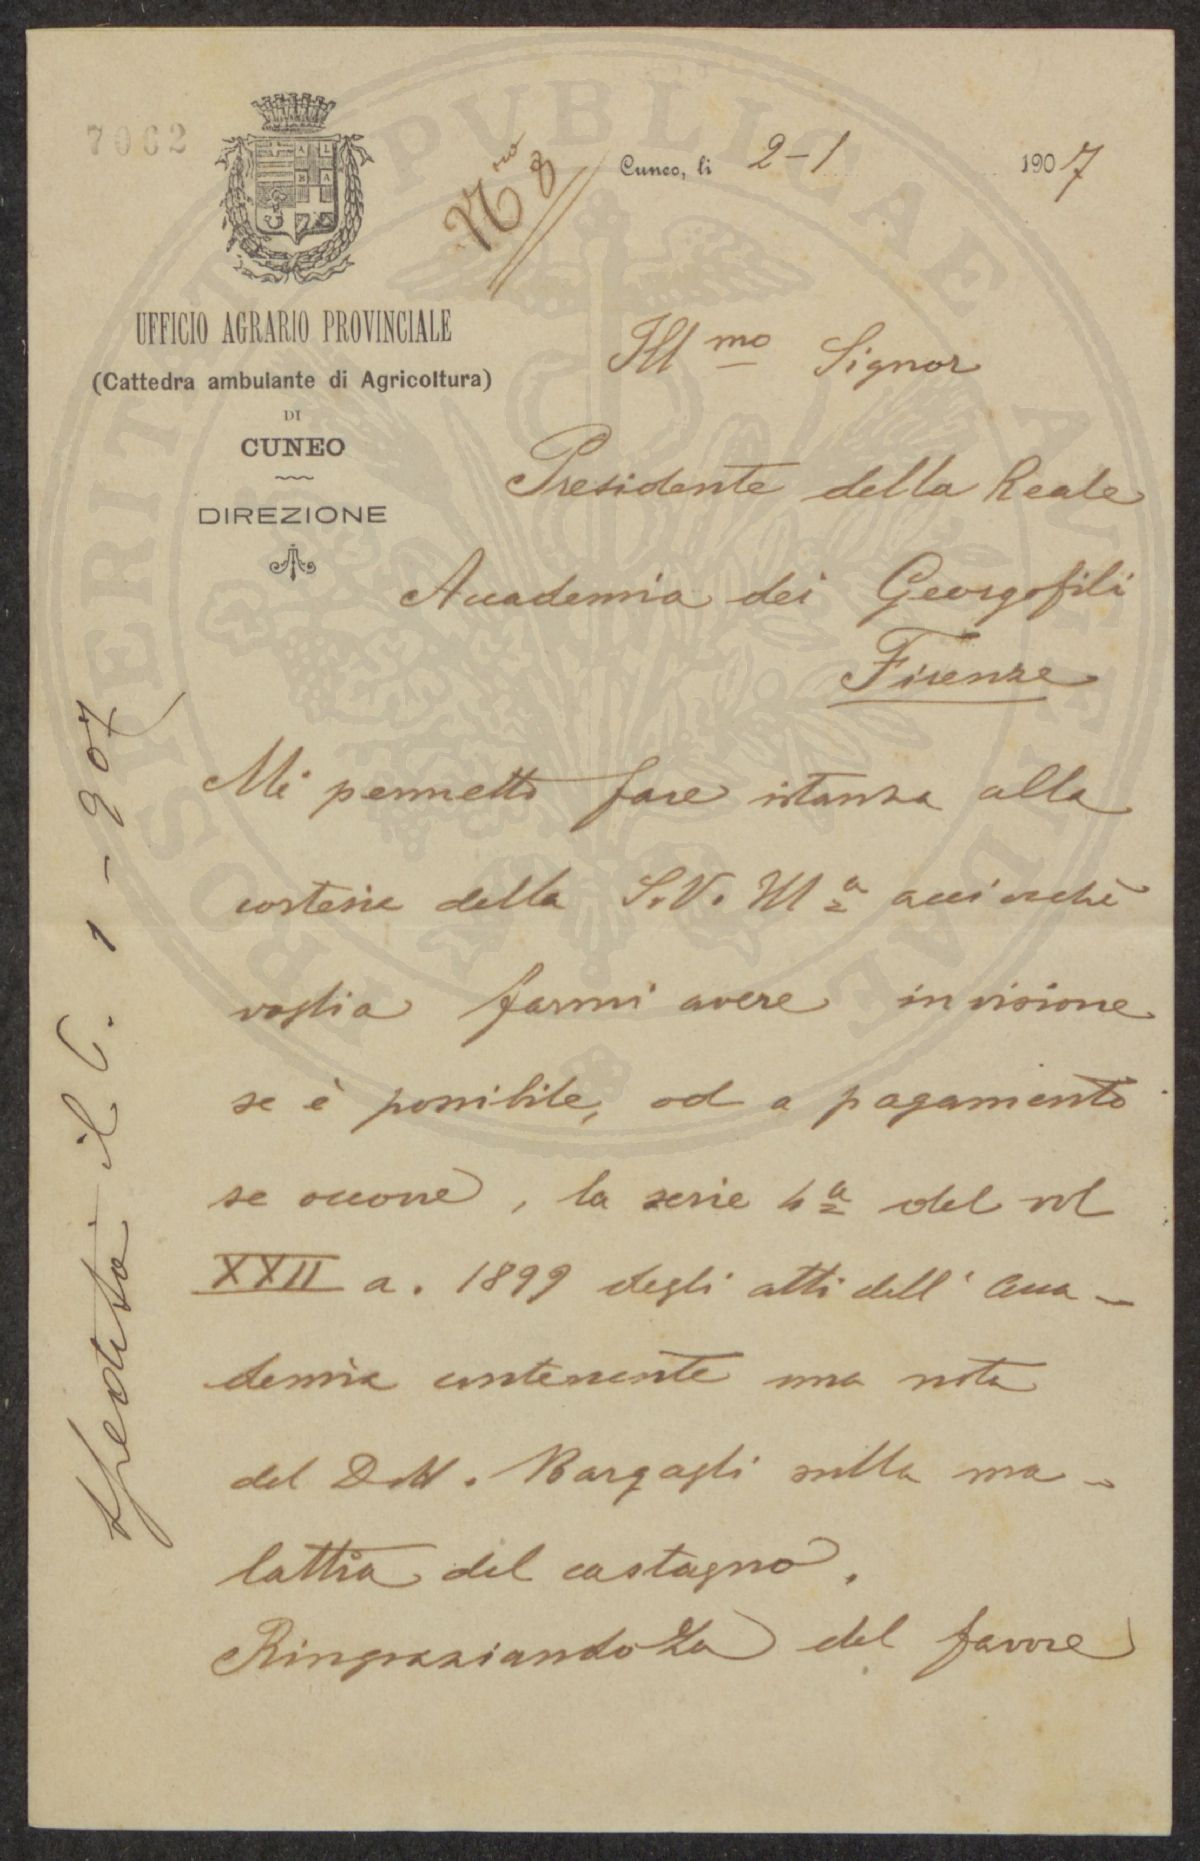 7062
N.ro 8
Cuneo, li 2-1 1907
UFFICIO AGRARIO PROVINCIALE
(Cattedra ambulante di Agricoltura)
DI
CUNEO
DIREZIONE
Ill mo Signor
Presidente della Reale
Accademia dei Georgofili
Firenze
Mi permetto fare istanza alla
cortesia della S.V. Ill a acciocchè
voglia farmi avere in visione
se è possibile, od a pagamento
se occorre, la serie 4a del vol
XXII a. 1899 degli atti dell' Acca-
demia contenente una nota
del Dott. Bargagli sulla ma-
lattia del castagno.
RingraziandoLa del favore
spedito il 6. 1 - 907
PROSPERITATI PVBLICAE AVGENDAE